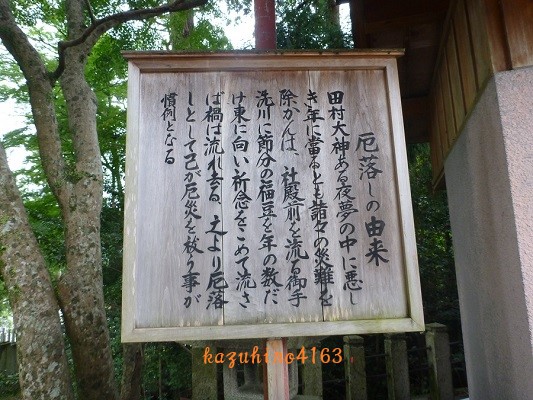 厄落しの由来
田村大神ある夜夢の中に悪し
き年に當るとも諸々の災難を
除かんは、社殿前を流る御手
洗川に節分の福豆を年の数だ
け東に向い祈念をこめて流さ
ば禍は流れ去る、之より厄落
しとして己が厄災を救う事が
慣例となる
kazuhino4163